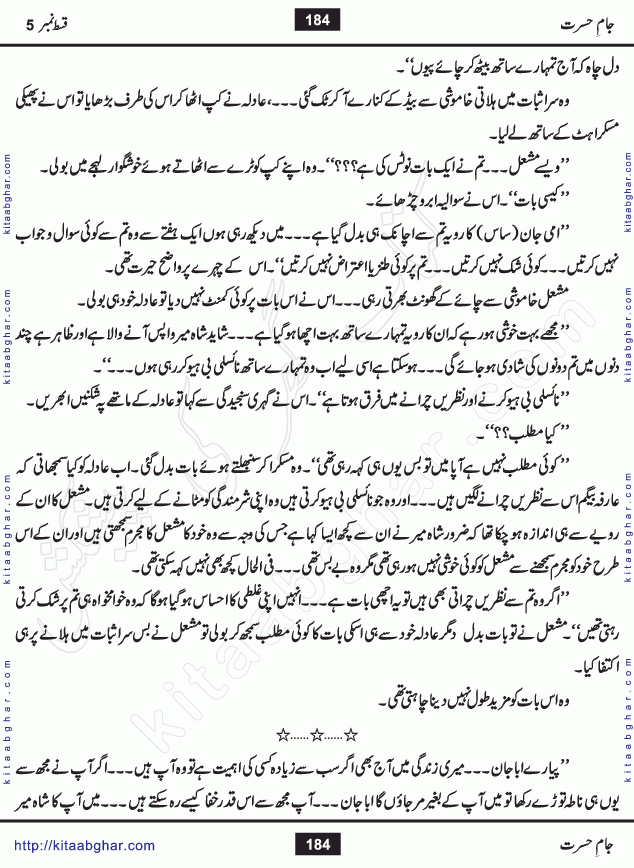 جامِ حسرت 184 قسط نمبر 5
دل چاہ کہ آج تمہارے ساتھ بیٹھ کر چائے پیوں‘‘۔
وہ سر اثبات میں ہلاتی خاموشی سے بیڈ کے کنارے آ کر ٹک گئی ۔۔۔، عادلہ نے کپ اٹھا کر اس کی طرف بڑھایا تو اس نے پھیکی
مسکراہٹ کے ساتھ لے لیا۔
’’ویسے مشعل ۔۔۔ تم نے ایک بات نوٹس کی ہے؟؟؟‘‘۔ وہ اپنے کپ کو ٹرے سے اٹھاتے ہوئے خوشگوار لہجے میں بولی۔
’’کیسی بات‘‘۔ اس نے سوالیہ ابرو چڑھائے۔
’’امی جان (ساس) کا رویہ تم سے اچانک ہی بدل گیا ہے ۔۔۔ میں دیکھ رہی ہوں ایک ہفتے سے وہ تم سے کوئی سوال و جواب
نہیں کرتیں ۔۔۔ کوئی شک نہیں کرتیں ۔۔۔ تم پر کوئی طنز یا اعتراض نہیں کرتیں‘‘۔ اس کے چہرے پر واضح حیرت تھی۔
مشعل خاموشی سے چائے کے گھونٹ بھرتی رہی ۔۔۔ اس نے اس بات پر کوئی کمنٹ نہیں دیا تو عادلہ خود ہی بولی۔
’’مجھے بہت خوشی ہو رہے کہ ان کا رویہ تمہارے ساتھ بہت اچھا ہو گیا ہے ۔۔۔ شاید شاہ میر واپس آنے والا ہے اور ظاہر ہے چند
دنوں میں تم دونوں کی شادی ہو جائے گی ۔۔۔ ہو سکتا ہے اسی لیے اب وہ تمہارے ساتھ نائسلی بی ہیو کر رہی ہوں ۔۔۔‘‘۔
’’نائسلی بی ہیو کرنے اور نظریں چرانے میں فرق ہوتا ہے‘‘۔ اس نے گہری سنجیدگی سے کہا تو عادلہ کے ماتھے پہ شکنیں ابھریں۔
’’کیا مطلب؟؟‘‘۔
’’کوئی مطلب نہیں ہے آپا میں تو بس یوں ہی کہہ رہی تھی‘‘۔ وہ مسکرا کر سنبھلتے ہوئے بات بدل گئی۔ اب عادلہ کو کیا سمجھاتی کہ
عارفہ بیگم اس سے نظریں چرانے لگیں ہیں ۔۔۔ اور وہ جو نائسلی بی ہیو کرتی ہیں وہ اپنی شرمندگی کو مٹانے کے لیے کرتی ہیں۔ مشعل کا ان کے
رویے سے ہی اندازہ ہو چکا تھا کہ ضرور شاہ میر نے ان سے کچھ ایسا کہا ہے جس کی وجہ سے وہ خود کا مشعل کا مجرم سمجھتی ہیں اور ان کے اس
طرح خود کو مجرم سمجھنے سے مشعل کو کوئی خوشی نہیں ہو رہی تھی مگر وہ بے بس تھی ۔۔۔ فی الحال کچھ بھی نہیں کہہ سکتی تھی۔
’’اگر وہ تم سے نظریں چراتی بھی ہیں تو یہ اچھی بات ہے ۔۔۔ انہیں اپنی غلطی کا احساس ہو گیا ہو گا کہ وہ خوامخواہ ہی تم پر شک کرتی
رہتی تھیں‘‘۔ مشعل نے تو بات بدل دی مگر عادلہ خود سے ہی اسکی بات کا کوئی مطلب سمجھ کر بولی تو مشعل نے بس سر اثبات میں ہلانے پر ہی
اکتفا کیا۔
وہ اس بات کو مزید طول نہیں دینا چاہتی تھی۔
☆......☆......☆
’’پیارے ابا جان ۔۔۔ میری زندگی میں آج بھی اگر سب سے زیادہ کسی کی اہمیت ہے تو وہ آپ ہیں ۔۔۔ اگر آپ نے مجھ سے
یوں ہی ناطہ توڑے رکھا تو میں آپ کے بغیر مر جاؤں گا ابا جان ۔۔۔ آپ مجھ سے اس قدر خفا کیسے رہ سکتے ہیں ۔۔۔ میں آپ کا شاہ میر
جامِ حسرت 184 http://kitaabghar.com
kitaabghar.com
kitaabghar.com
kitaabghar.com
kitaabghar.com
kitaabghar.com
kitaabghar.com
kitaabghar.com
kitaabghar.com
کتاب گھر کی پیشکش
kitaabghar.com